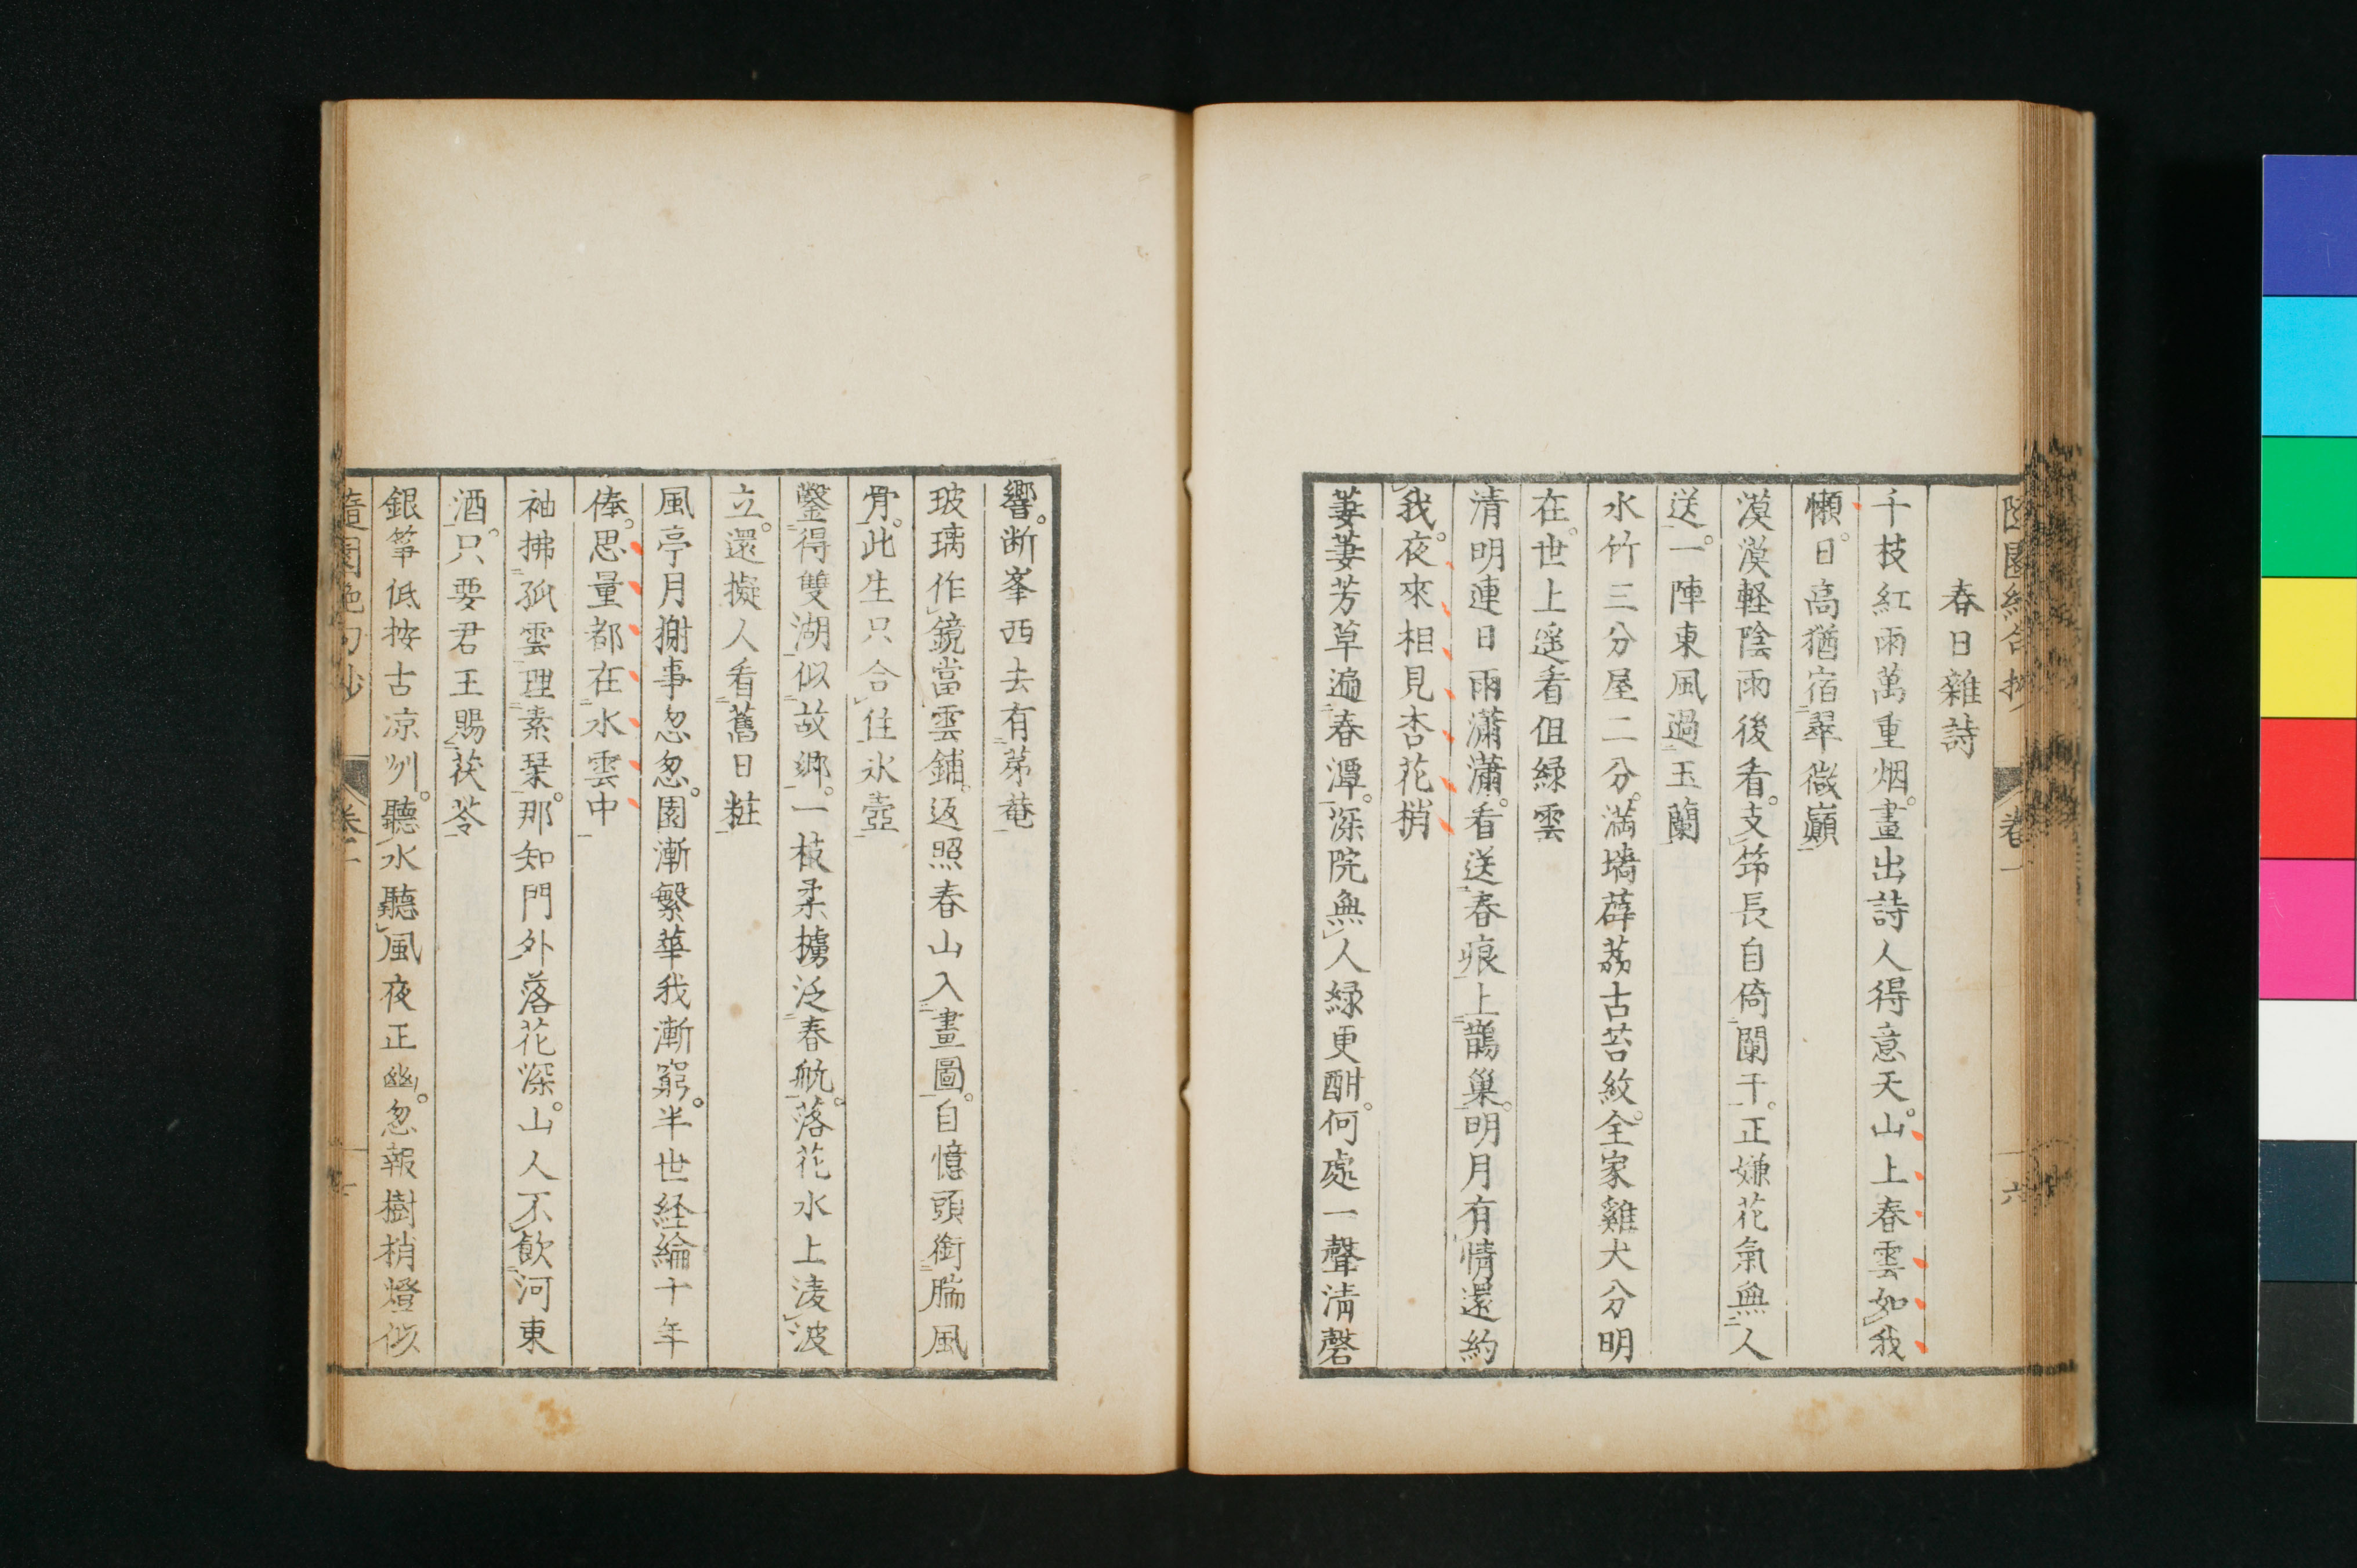 春日雜詩
千枝紅雨萬重烟。畫出詩人得意天。山上春雲如我
懶。日高猶宿翠微巔
漠漠軽陰雨後看。支筇長自倚闌干。正嫌花氣無人
送。一陣東風過玉蘭
水竹三分屋二分。満墻薜荔古苔紋。全家雞犬分明
在。世上遥看但緑雲
清明連日雨瀟瀟。看送春痕上鵲巢。明月有情還約
我。夜來相見杏花梢
萋萋芳草遍春潭。深院無人緑更酣。何處一聲清磬
響。断峯西去有茅菴
玻璃作鏡當雲鋪。返照春山入畫圖。自憶頭銜腦風
骨。此生只合住氷壺
鑿得雙湖似故郷。一枝柔櫓泛春航。落花水上淩波
立。還擬人看舊日粧
風亭月榭事忽忽。園漸繁華我漸窮。半世経綸十年
俸。思量都在水雲中
袖拂孤雲理素琹。那知門外落花深。山人不飲河東
酒。只要君王賜茯苓
銀筝低按古凉州。聽水聽風夜正幽。忽報樹梢燈似
隨園絶句抄 卷一